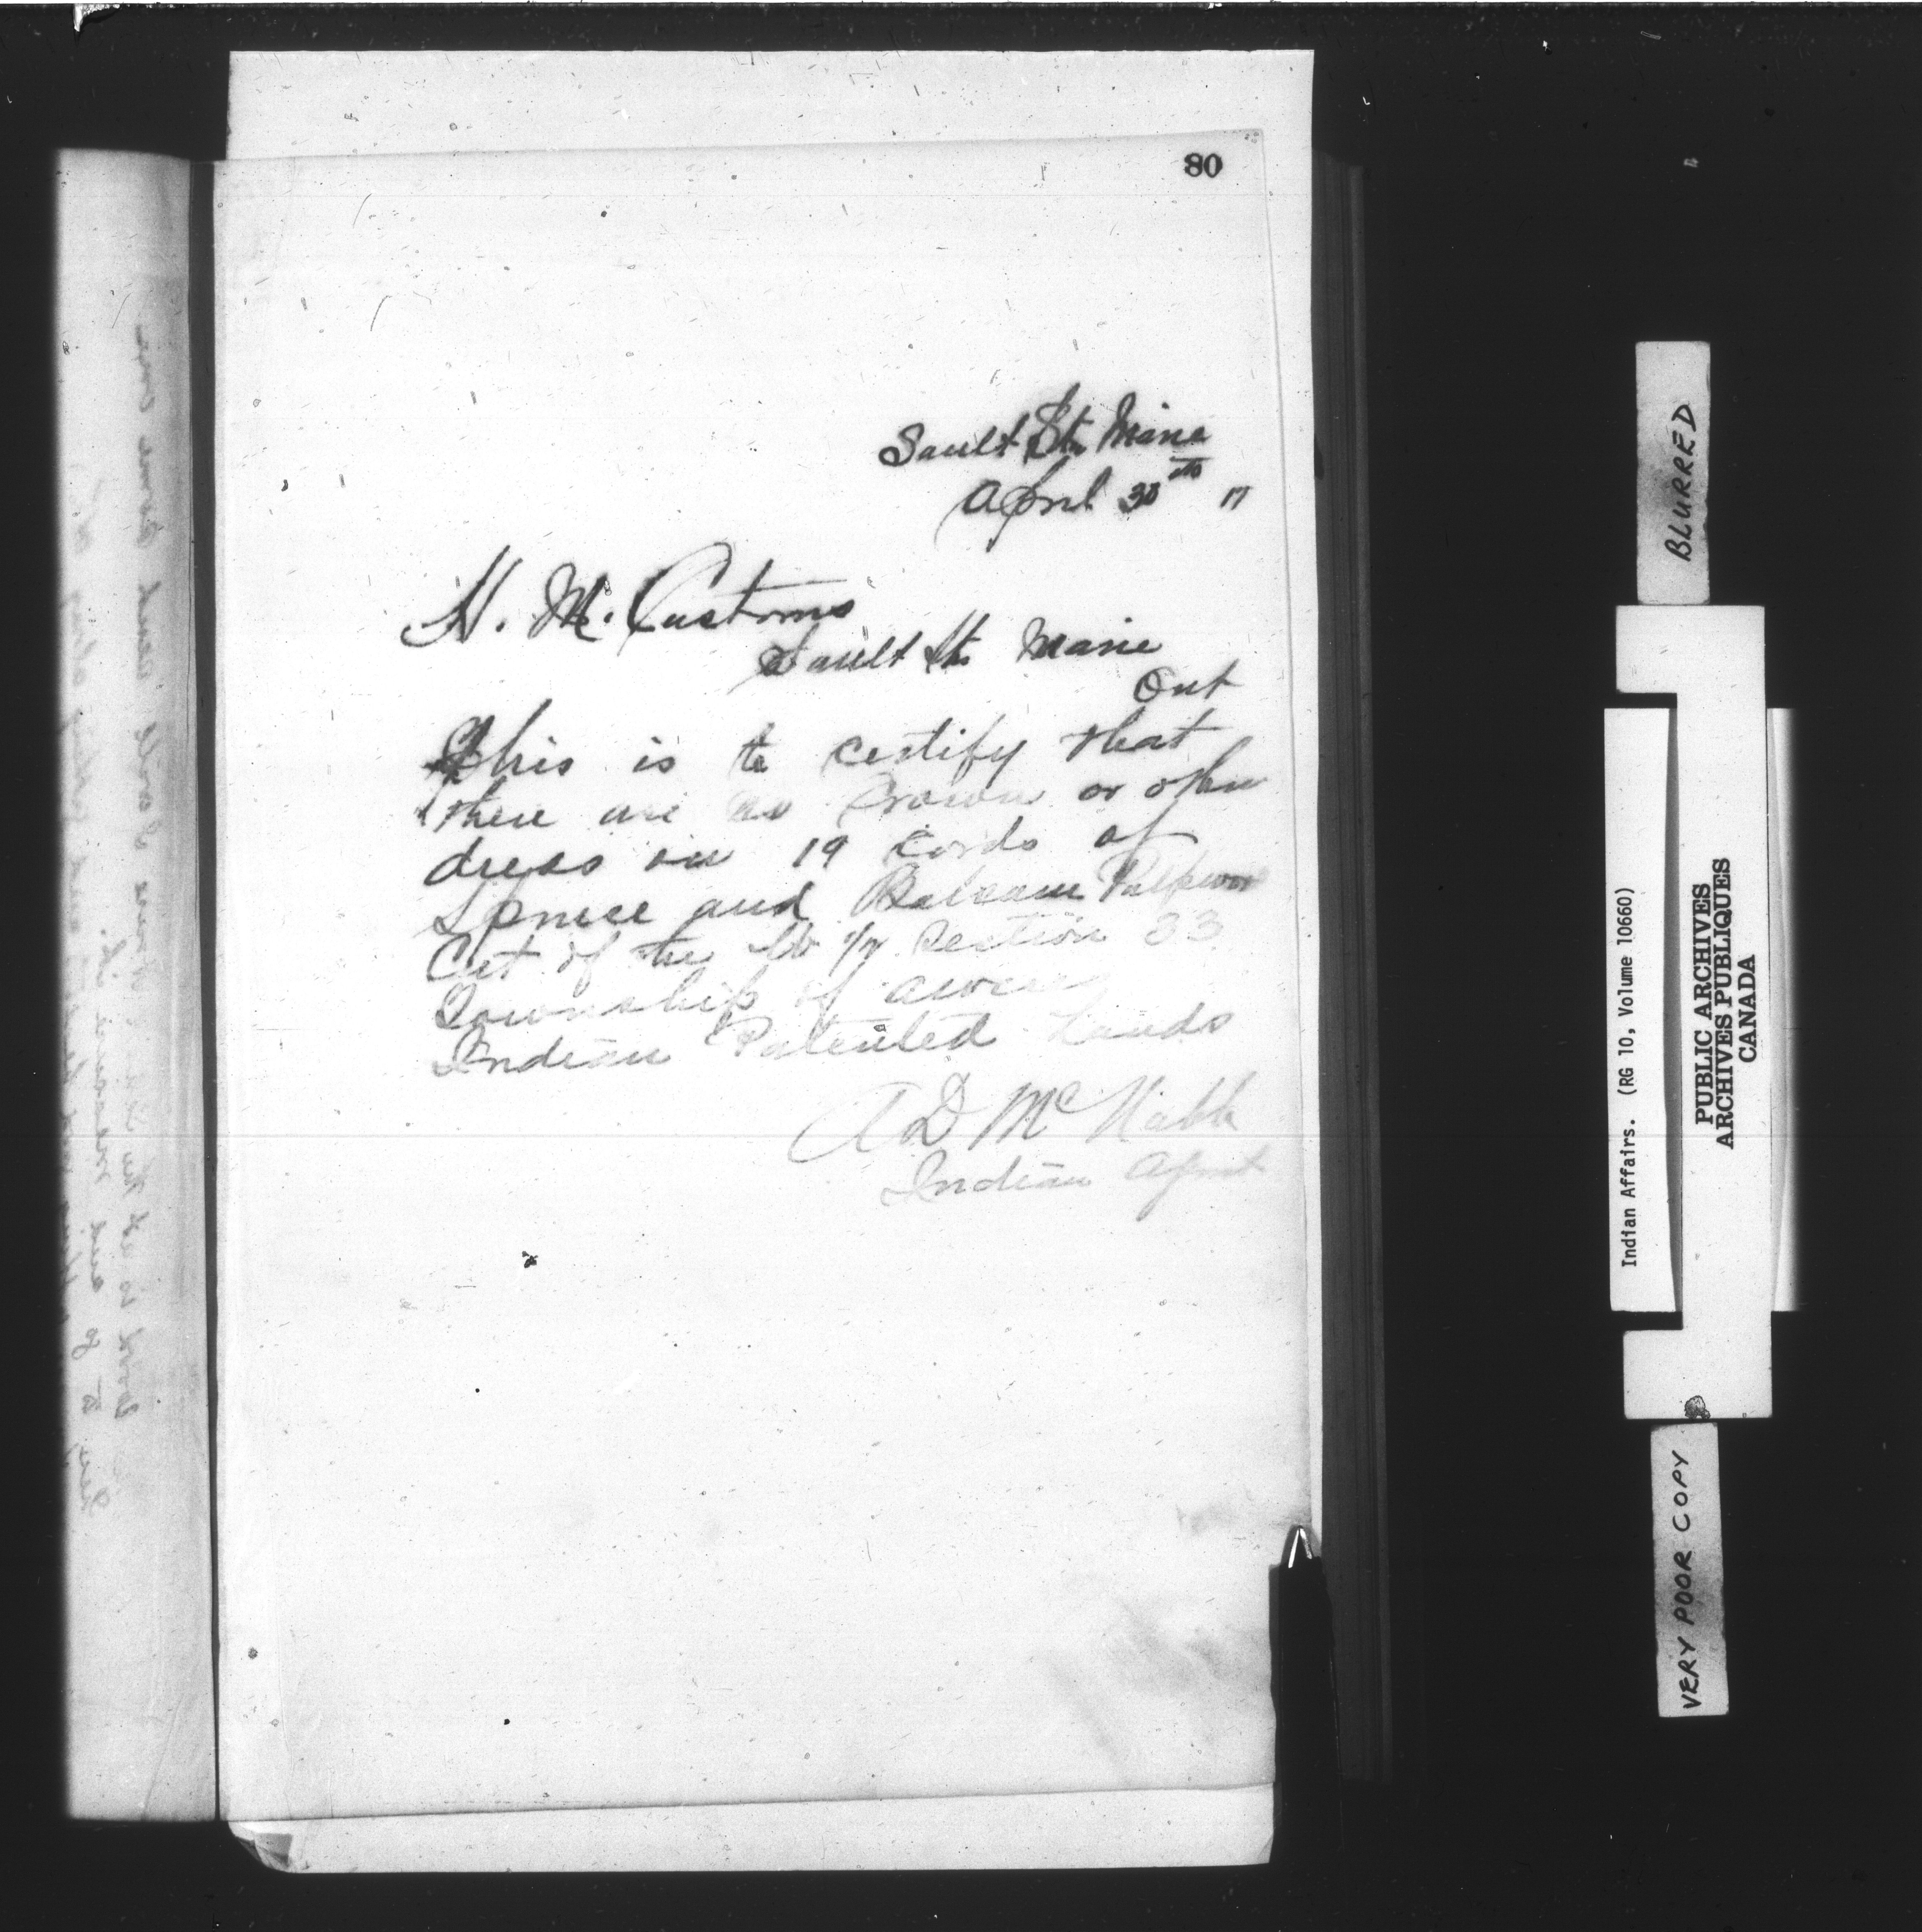 80
Sault Ste Marie
April 30th 17
H. M. Customs
Sault Ste Marie
Ont
This is to certify that
there are no Crown or other
dues on 19 Cords of
Spruce and Balsam Pulpwood
Cut of the 1/2 Section 33
Township of Aweres
Indian Patented Lands
A D McNabb
Indian Agent
BLURRED
Indian Affairs. (RG 10, Volume 10660)
PUBLIC ARCHIVES
ARCHIVES PUBLIQUES
CANADA
VERY POOR COPY